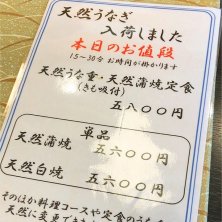 天然うなぎ
入荷しました
本日のお値段
15～30分 お時間が掛かります
天然うな重・天然蒲焼定食
(きも吸付)
五八〇〇円
単品
天然蒲焼 五六〇〇円
天然白焼 五六〇〇円
そのほか料理コースや定食のうなぎ
天然に変更でき